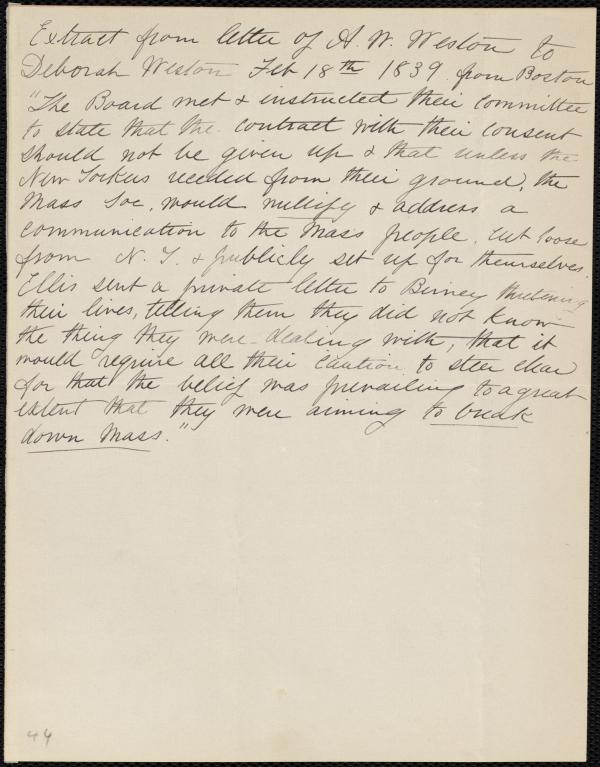 Extract from letter of A. W. Weston to
Deborah Weston Feb 18th 1839 from Boston
"The Board met & instructed their committee
to state that the contract with their consent
should not be given up & that unless the
New Yorkers receded from their ground, the
Mass Soc, would nullify & address a
communication to the Mass people, cut loose
from N. Y. & publicly set up for themselves.
Ellis sent a private letter to Birney thretening
their lives, telling them they did not know
the thing they were dealing with, that it
would require all their caution to steer clear
for that the belief was prevailing to a great
extent that they were aiming to break
down Mass."
44